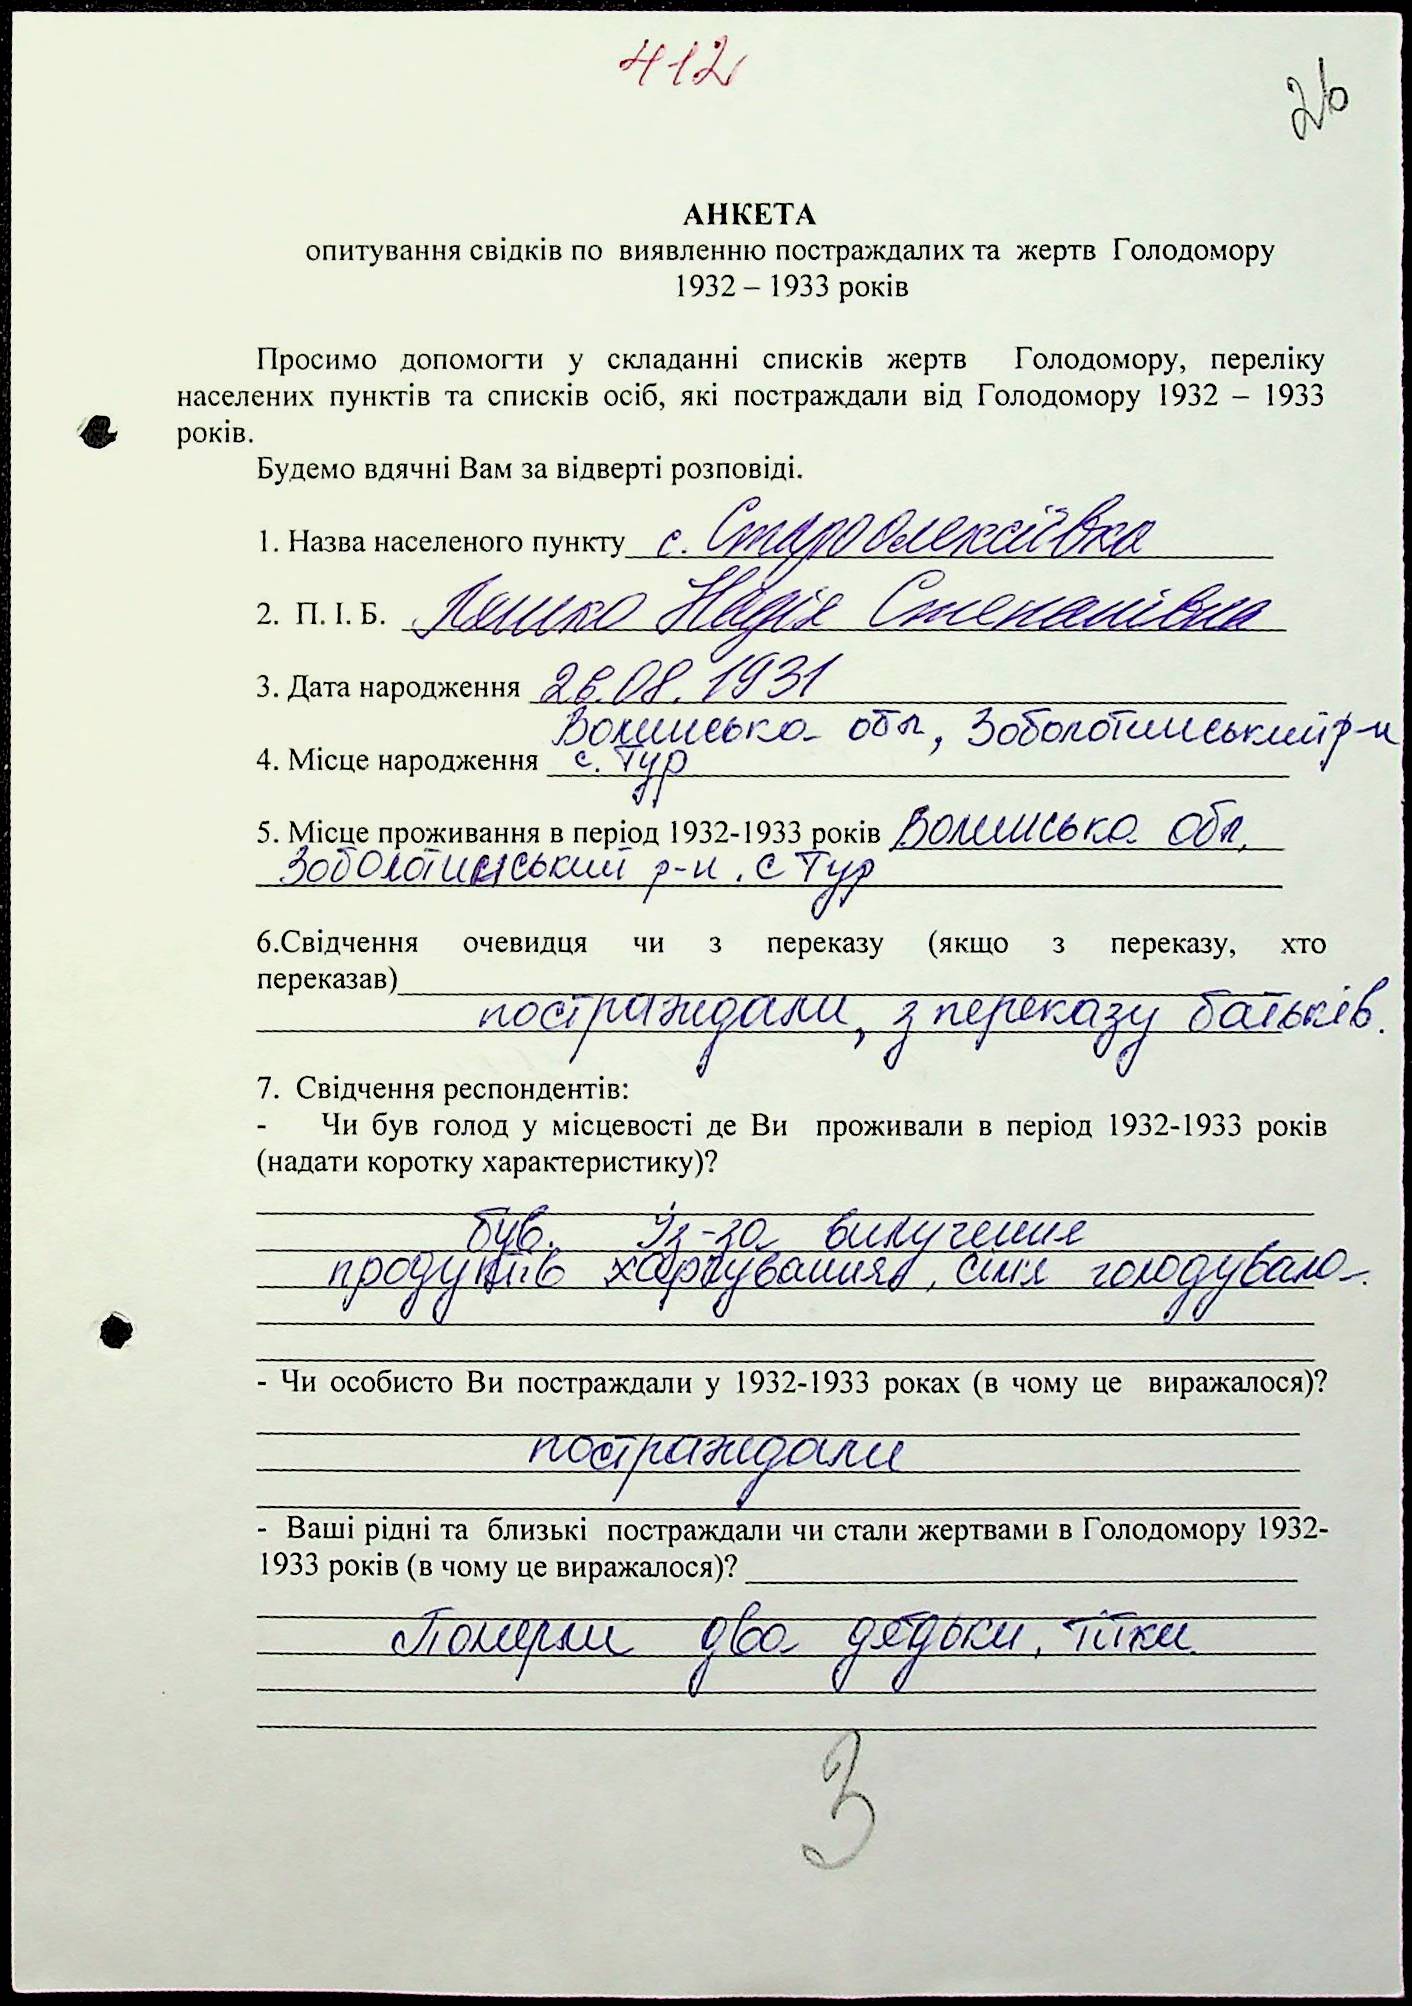 412
26
АНКЕТА
опитування свідків по виявленню постраждалих та жертв Голодомору
1932 – 1933 років
Просимо допомогти у складанні списків жертв Голодомору, переліку
населених пунктів та списків осіб, які постраждали від Голодомору 1932 – 1933
років.
Будемо вдячні Вам за відверті розповіді.
1. Назва населеного пункту с. Старолексіївка
2. П. І. Б. Ляшко Надія Степанівна
3. Дата народження 26.08.1931
Волинська обл, Зоболотинський р-н
4. Місце народження с. Тур
5. Місце проживання в період 1932-1933 років Волинська обл,
Зоболотинський р-н. с Тур
6.Свідчення очевидця чи з переказу (якщо з переказу, хто
переказав)
постраждали, з переказу батьків.
7. Свідчення респондентів:
- Чи був голод у місцевості де Ви проживали в період 1932-1933 років
(надати коротку характеристику)?
був. Із-за вилучення
продуктів харчування, сім'я голодувала.
- Чи особисто Ви постраждали у 1932-1933 роках (в чому це виражалося)?
постраждали
- Ваші рідні та близькі постраждали чи стали жертвами в Голодомору 1932-
1933 років (в чому це виражалося)?
Померли два дядьки, тітки.
3